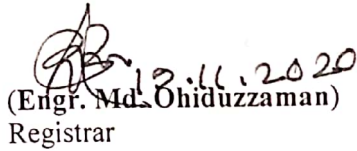 12.11.2020
(Engr. Md. Ohiduzzaman)
Registrar